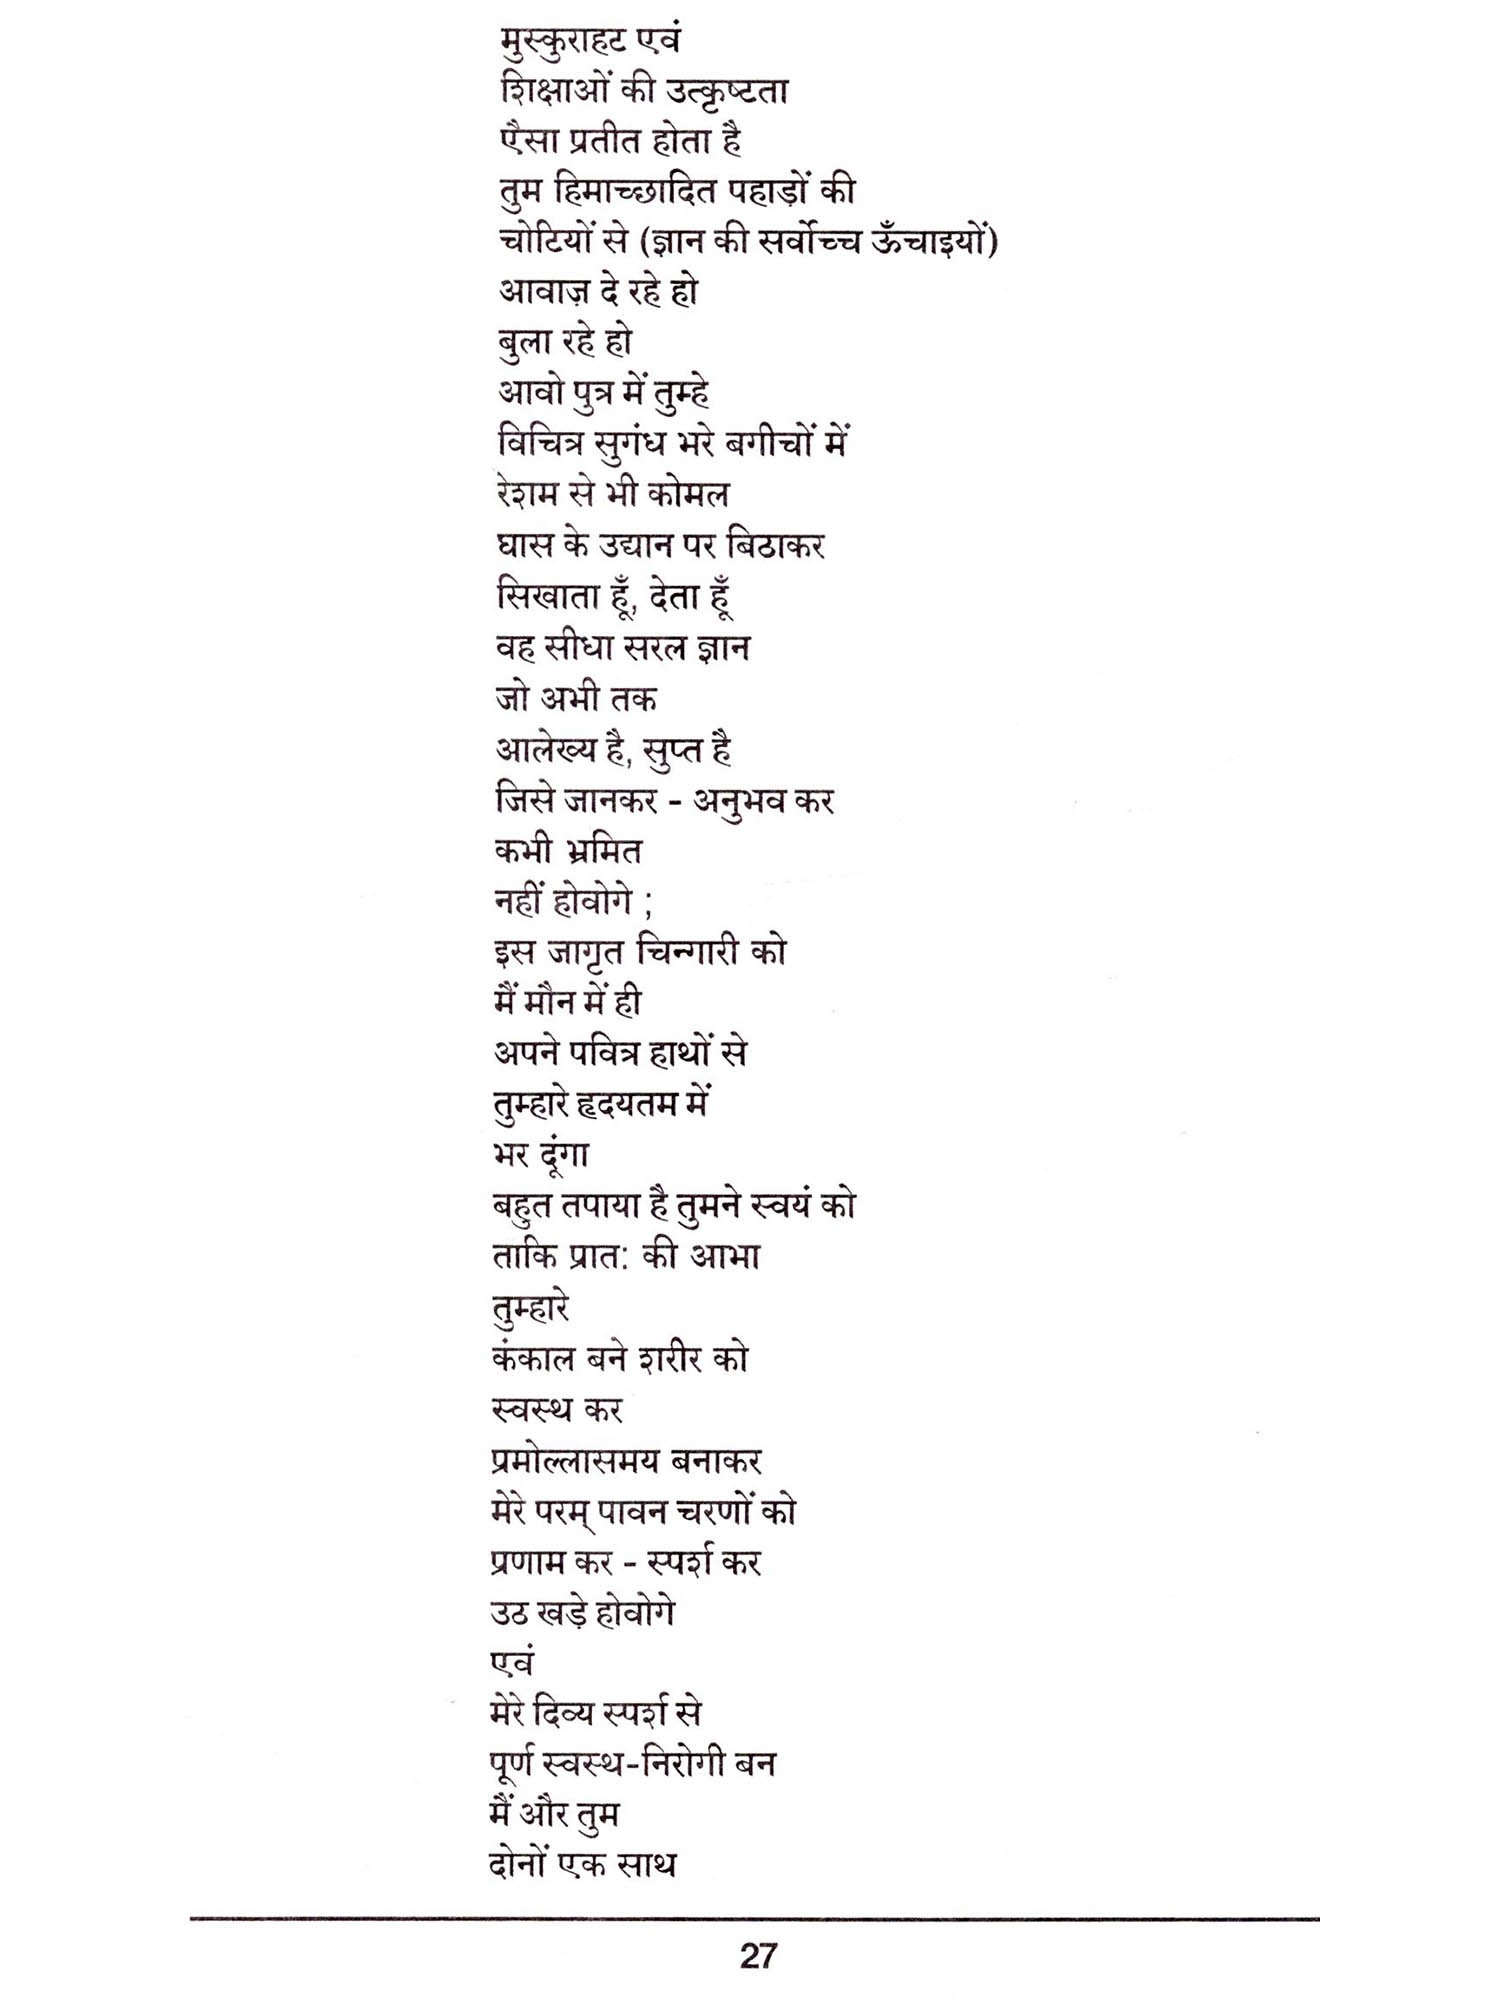 मुस्कुराहट एवं
शिक्षाओं की उत्कृष्टता
एैसा प्रतीत होता है
तुम हिमाच्छादित पहाड़ों की
चोटियों से (ज्ञान की सर्वोच्च ऊँचाइयों)
आवाज़ दे रहे हो
बुला रहे हो
आवो पुत्र में तुम्हे
विचित्र सुगंध भरे बगीचों में
रेशम से भी कोमल
घास के उद्यान पर बिठाकर
सिखाता हूँ, देता हूँ
वह सीधा सरल ज्ञान
जो अभी तक
आलेख्य है, सुप्त है
जिसे जानकर - अनुभव कर
कभी भ्रमित
नहीं होवोगे ;
इस जागृत चिन्गारी को
मैं मौन में ही
अपने पवित्र हाथों से
तुम्हारे हृदयतम में
भर दूंगा
बहुत तपाया है तुमने स्वयं को
ताकि प्रात: की आभा
तुम्हारे
कंकाल बने शरीर को
स्वस्थ कर
प्रमोल्लासमय बनाकर
मेरे परम् पावन चरणों को
प्रणाम कर - स्पर्श कर
उठ खड़े होवोगे
एवं
मेरे दिव्य स्पर्श से
पूर्ण स्वस्थ-निरोगी बन
मैं और तुम
दोनों एक साथ
27